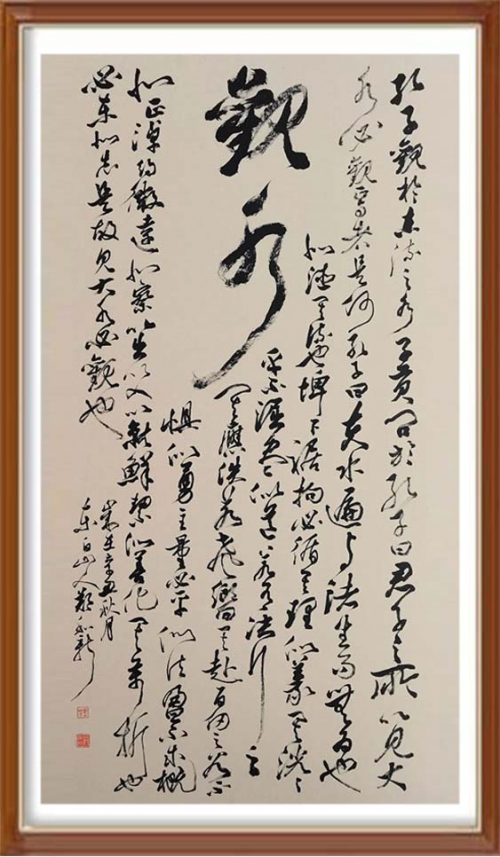 孔子觀於東流之水子貢問於孔子曰君子之所以見大
水必觀焉者是何孔子曰夫水遍与諸生而無為也
似德其流也埤下裾拘必循其理似義其洸々
乎不淈盡似道若有決行之
觀水
其應佚若聲響其赴百仞之谷不
懼似勇主量必平似法盈不求概
似正淖約微達似察以出以入以就鮮絜似善化其萬折也
必東似志是故見大水必觀也
歲在辛丑秋月
東白山人鄭